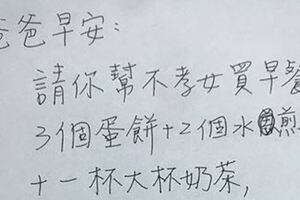 爸爸早安：
請你幫不孝女買早餐
3個蛋餅+2個水煎
+一杯大杯奶茶,